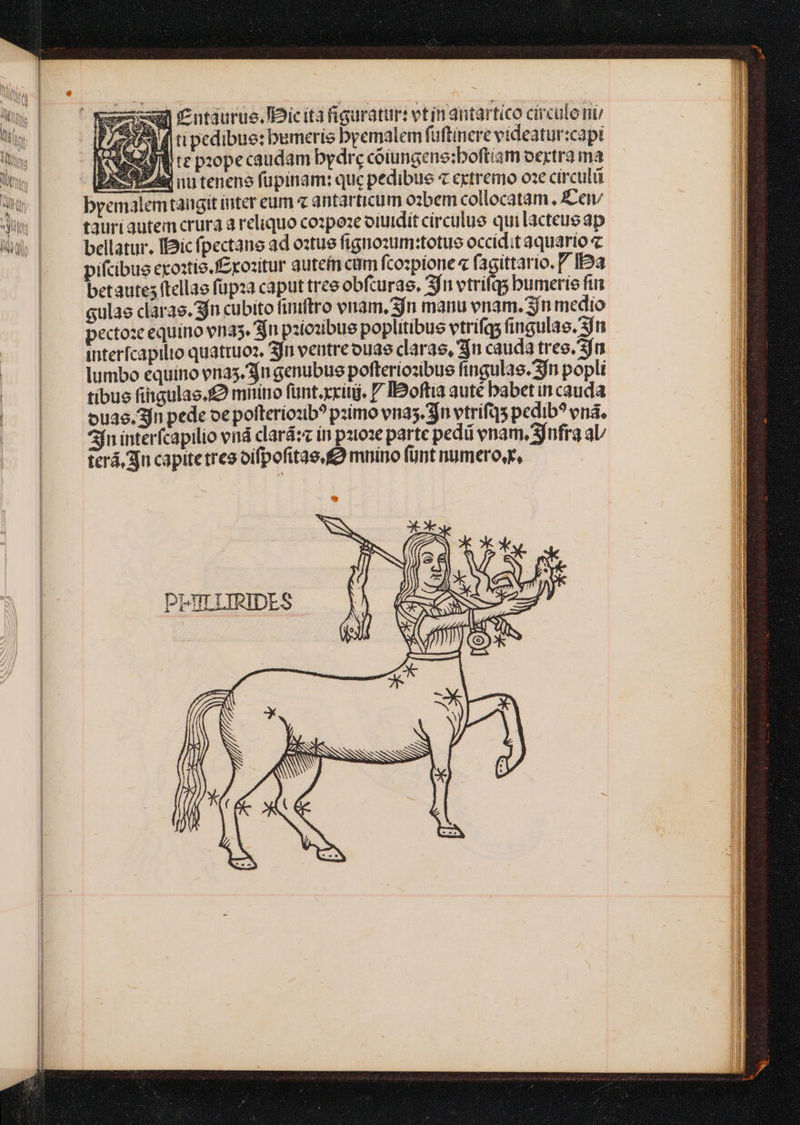 CEntaurus. Hic ita figuratur: vt in antartico circulo ni/
ti pedibus: humeris hyemalem sustinere videatur: capi
te prope caudam hydrę cōiungens: hostiam dextra ma
nu tenens supinam: quę pedibus ⁊ extremo ore circulū
hyemalem tangit inter eum ⁊ antarticum orbem collocatam. Cen/
tauri autem crura a reliquo corpore diuidit circulus qui lacteus ap
bellatur. Hic spectans ad ortus signorum: totus occidit aquario ⁊
piscibus exortis. Exoritur autem cum scorpione ⁊ sagittario. ⁋ Ha
bet autez stellas supra caput tres obscuras. In vtrisqꝫ humeris sin
gulas claras. In cubito sinistro vnam. In manu vnam. In medio
pectore equino vnaꝫ. In prioribus poplitibus vtrisqꝫ singulas. In
interscapilio quattuor. In ventre duas claras, In cauda tres. In
lumbo equino vnaꝫ. In genubus posterioribus singulas. In popli
tibus singulas. O mnino sunt. xxiiij. ⁋ Hostia autē habet in cauda
duas. In pede de posteriorib⁹ primo vnaꝫ. In vtrisqꝫ pedib⁹ vnā.
In interscapilio vnā clarā: ⁊ in priore parte pedū vnam. Infra al/
terā. In capite tres dispositas. O mnino sunt numero. x.
PHILLIRIDES